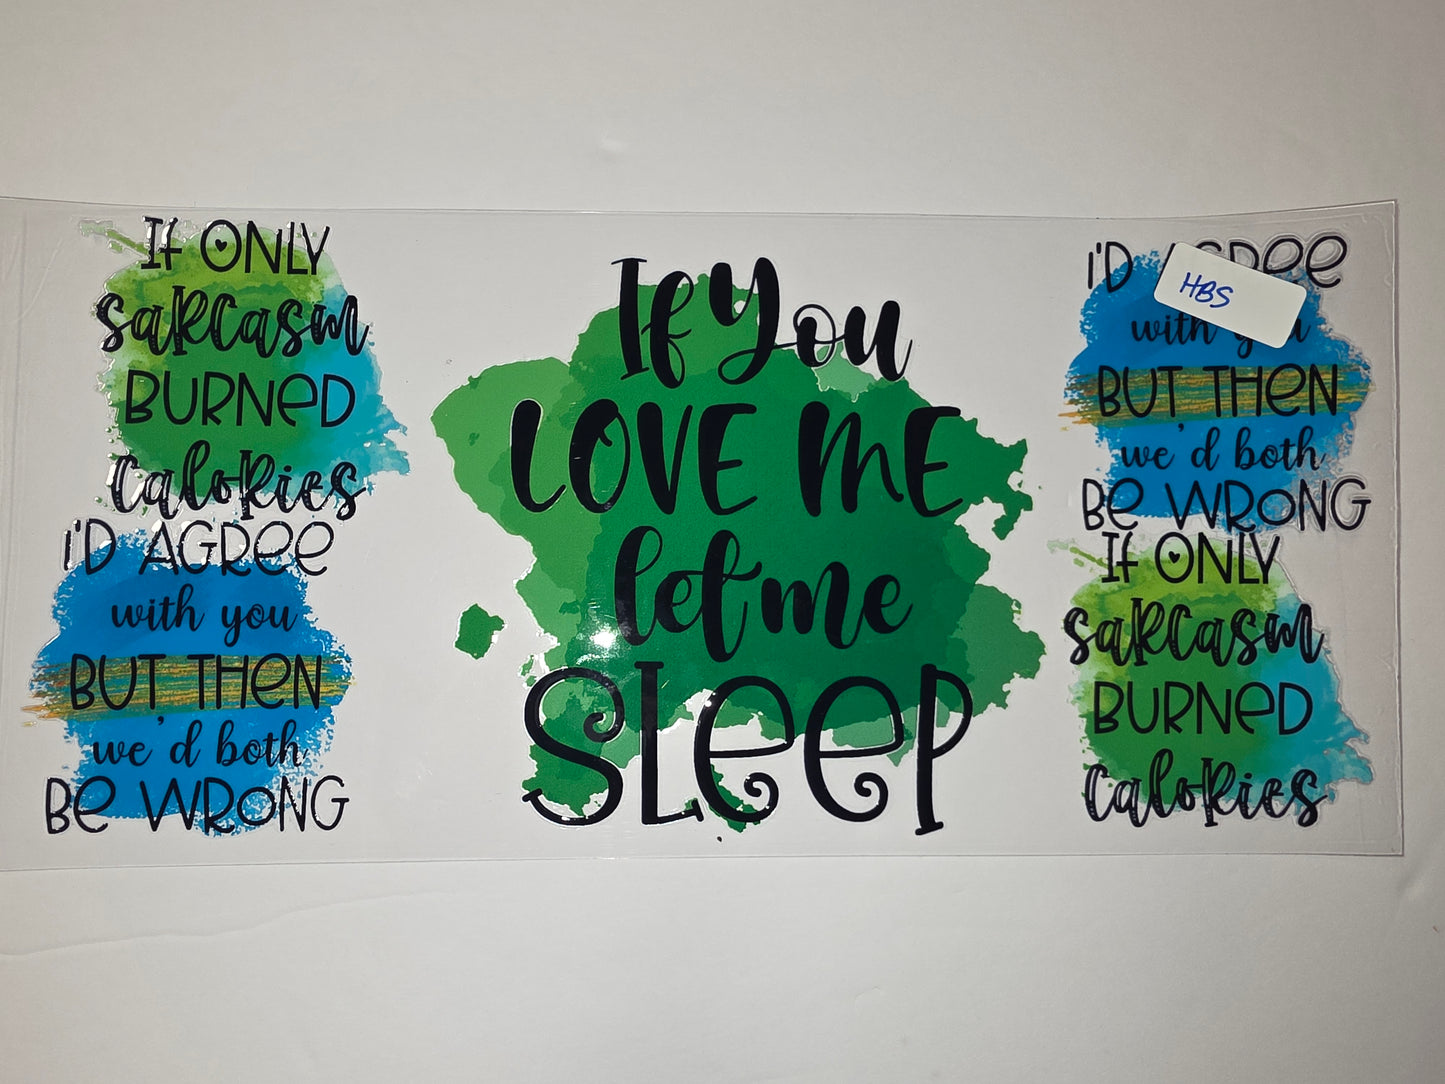 If ONLY
sarcasm
BURNeD
calories
I'D AGRee
with you
BUT THeN
we'd both
Be WRONG
If You
LOVE ME
let me
SLeeP
I'D AGRee
HBS
with you
BUT THeN
we'd both
Be WRONG
If ONLY
sarcasm
BURNeD
calories